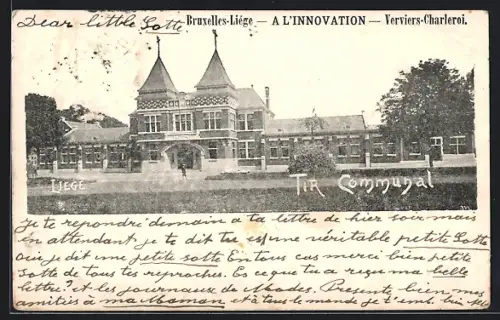 Dear little Sotte
Bruxelles-Liége — A L'INNOVATION — Verviers-Charleroi.
LIÉGE
TIR Communal
Je te repondré demain a ta lettre de hier soir mais
en attendant je te dit tu es une véritable petite Sotte
oui je dit une petite sotte En tous cas merci bien petite
Sotte de tous tes reproches. Es ce que tu a reçu ma belle
lettre? et les journaux de Modes. Presente bien mes
amitiés à ma Maman et à tous le monde je t'emb. bien